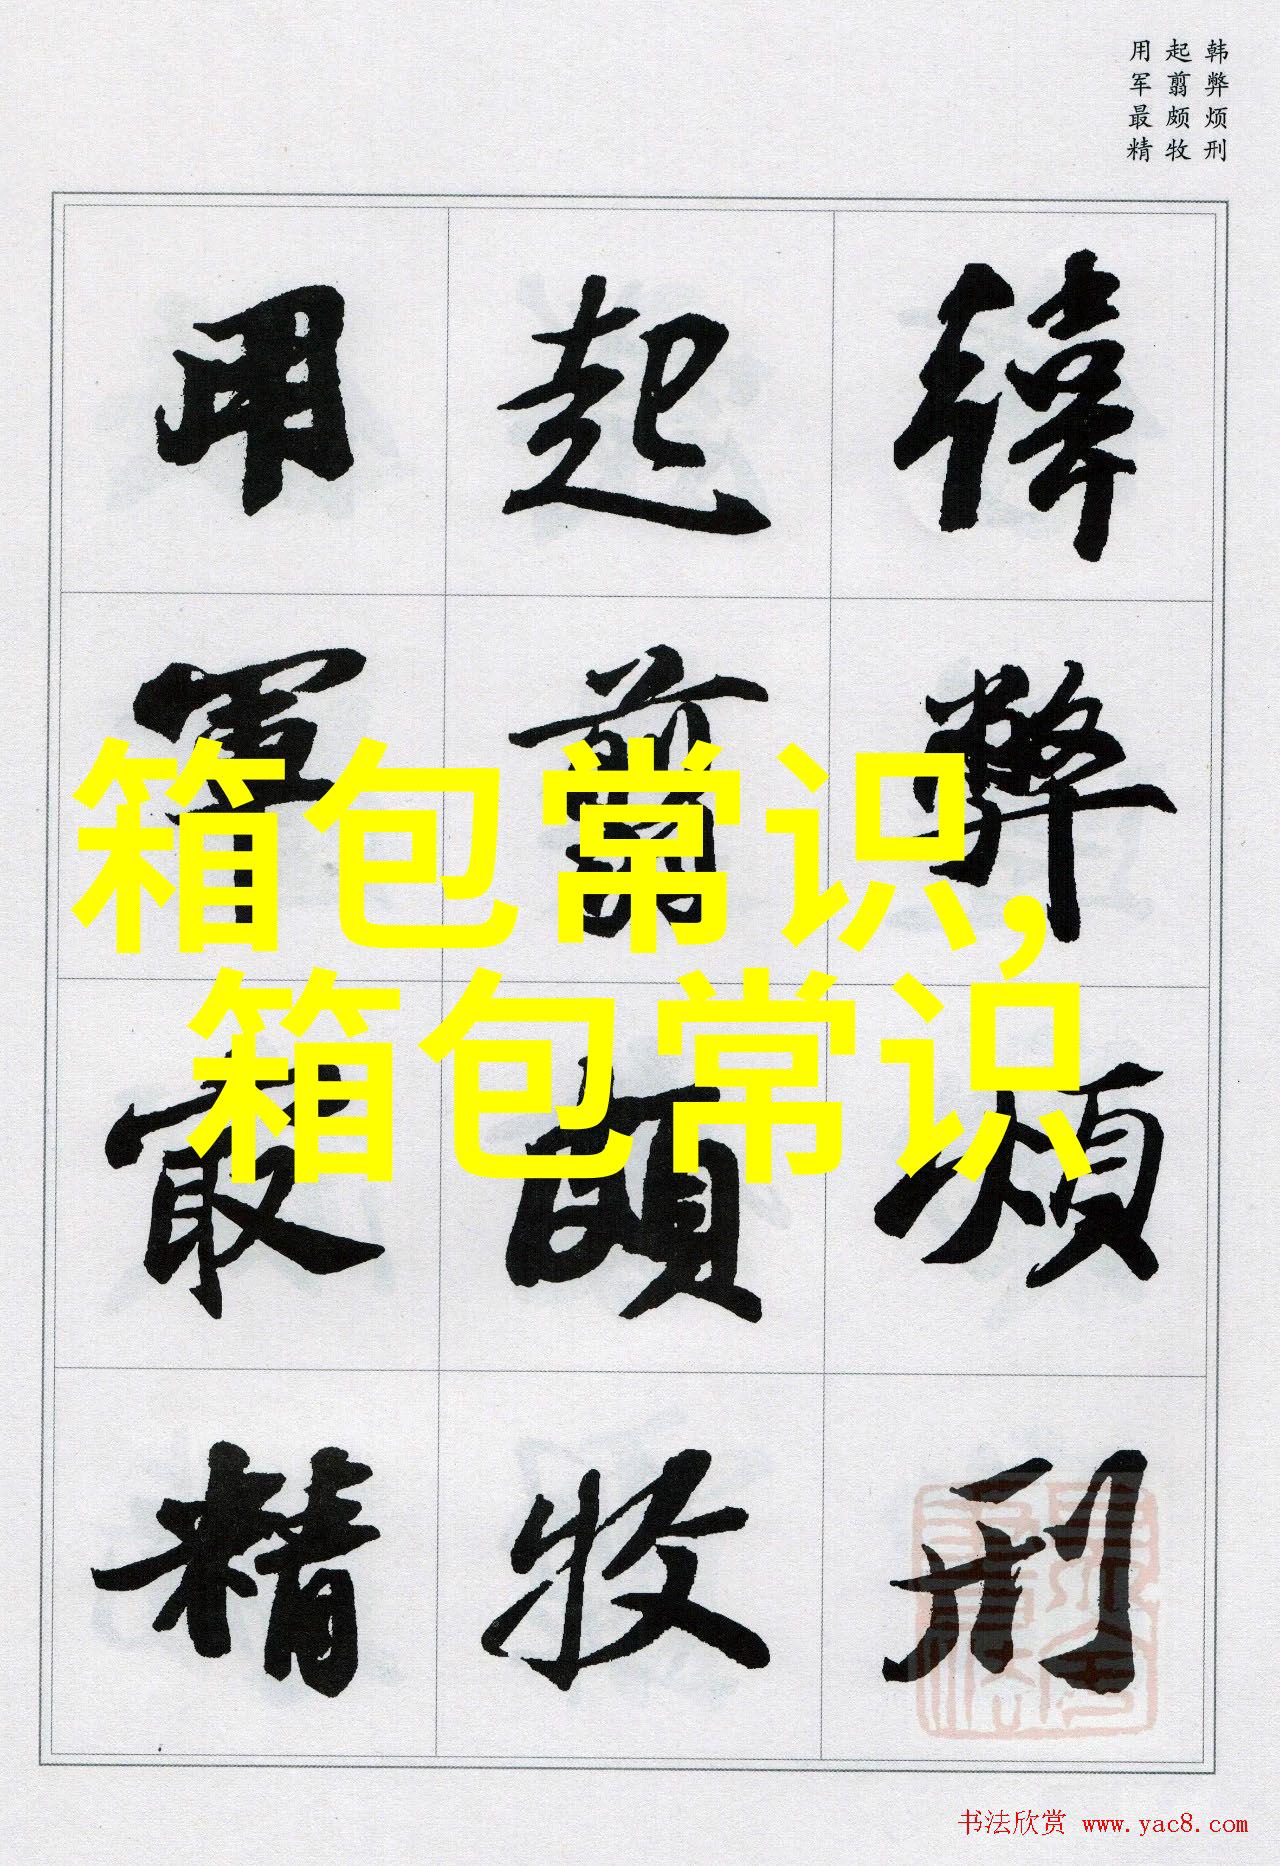 韩弊烦刑
起翦颇牧
用军最精
韓弊煩刑
起翦頗牧
用軍最精
箱包常识,
箱包常识
书法欣赏 www.yac8.com